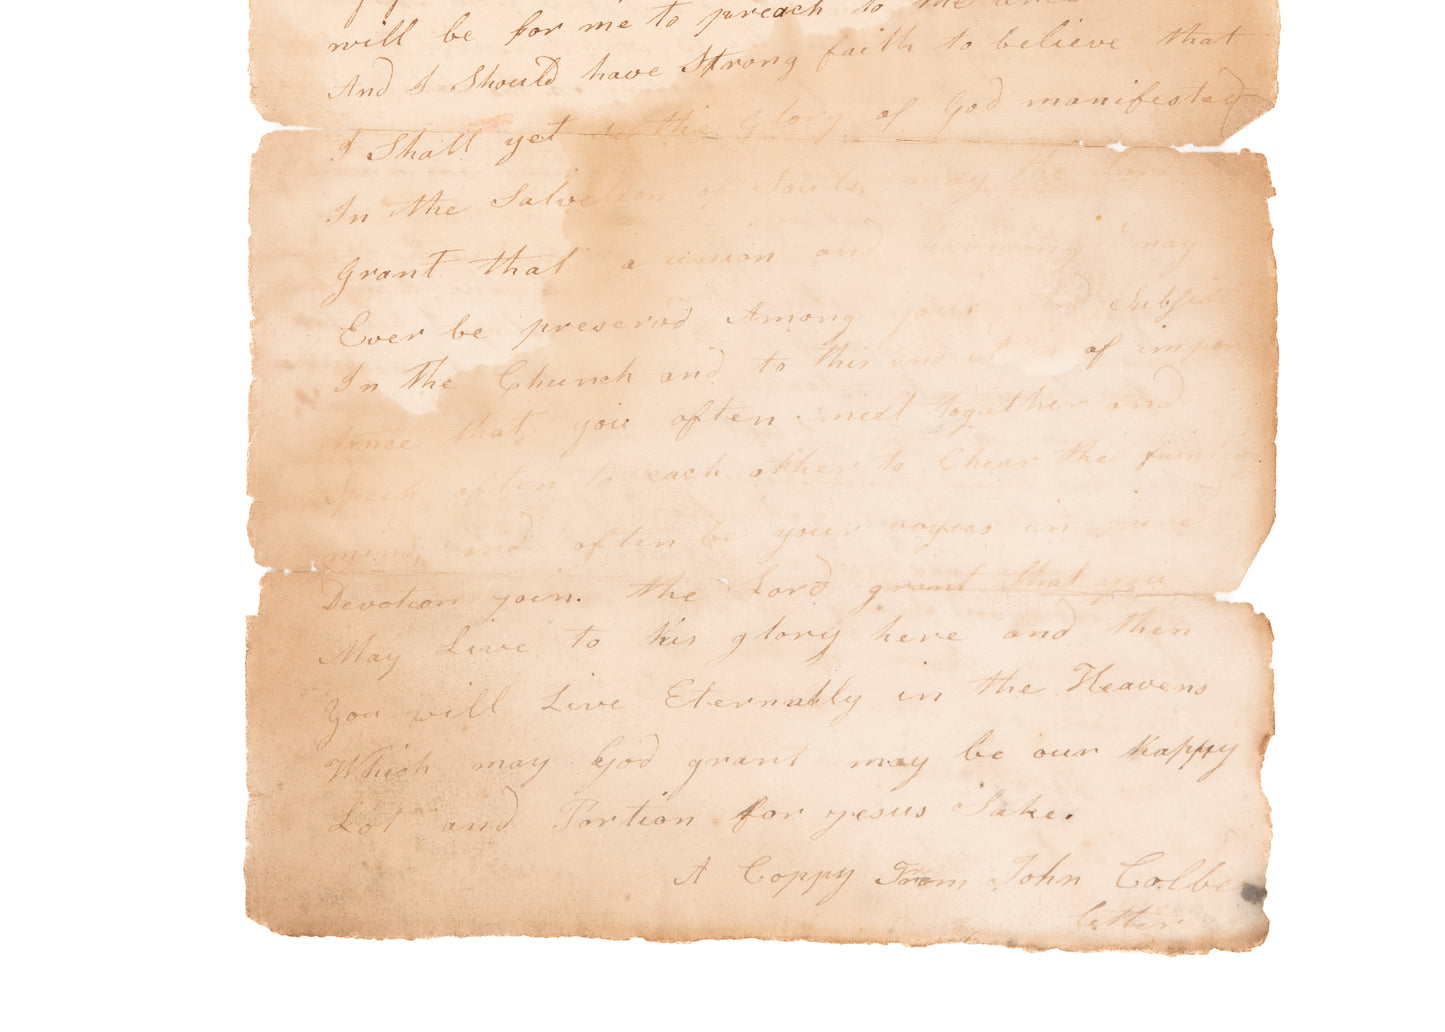 will be for me to preach to the
And I Should have Strong faith to believe that
I Shall yet see the Glory of God manifested
In the Salvation of Souls, may the Lord
grant that a union and harmony may
Ever be preserv'd Among you And Subsist
In the Church and to this end it is of impor
tance that you often meet together and
Speek often to each other to Chear the fainting
mind, and often be your voyses in pure
Devotion join. the Lord grant that you
May Live to his glory here and then
You will Live Eternally in the Heavens
Which may God grant may be our happy
Lot and Portion for jesus Sake.
A Coppy From John Colbe
letter